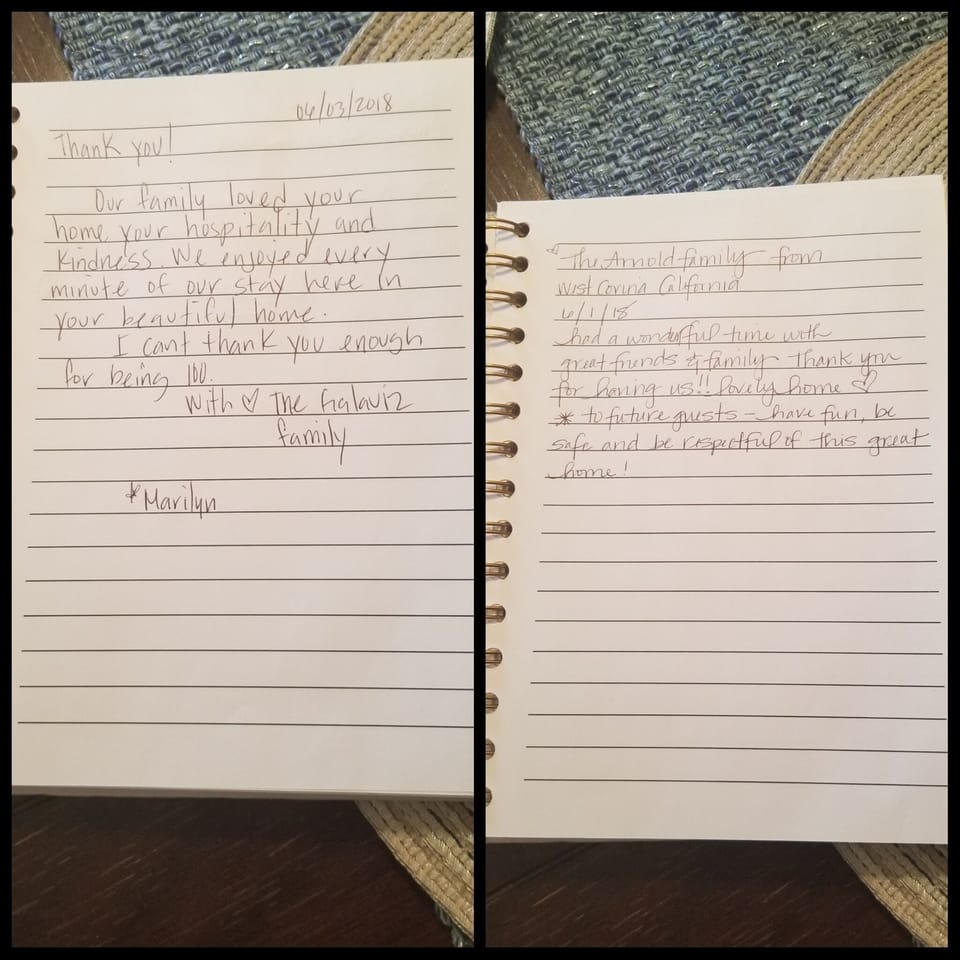 06/03/2018
Thank you!
Our family loved your
home, your hospitality and
kindness. We enjoyed every
minute of our stay here in
your beautiful home.
I cant thank you enough
for being 100.
With ♡ The Galaviz
family
*Marilyn
♡ The Arnold family from
West Covina California
6/1/18
had a wonderful time with
great friends & family Thank you
for having us!! Lovely home ♡
* to future guests - have fun, be
safe and be respectful of this great
home!